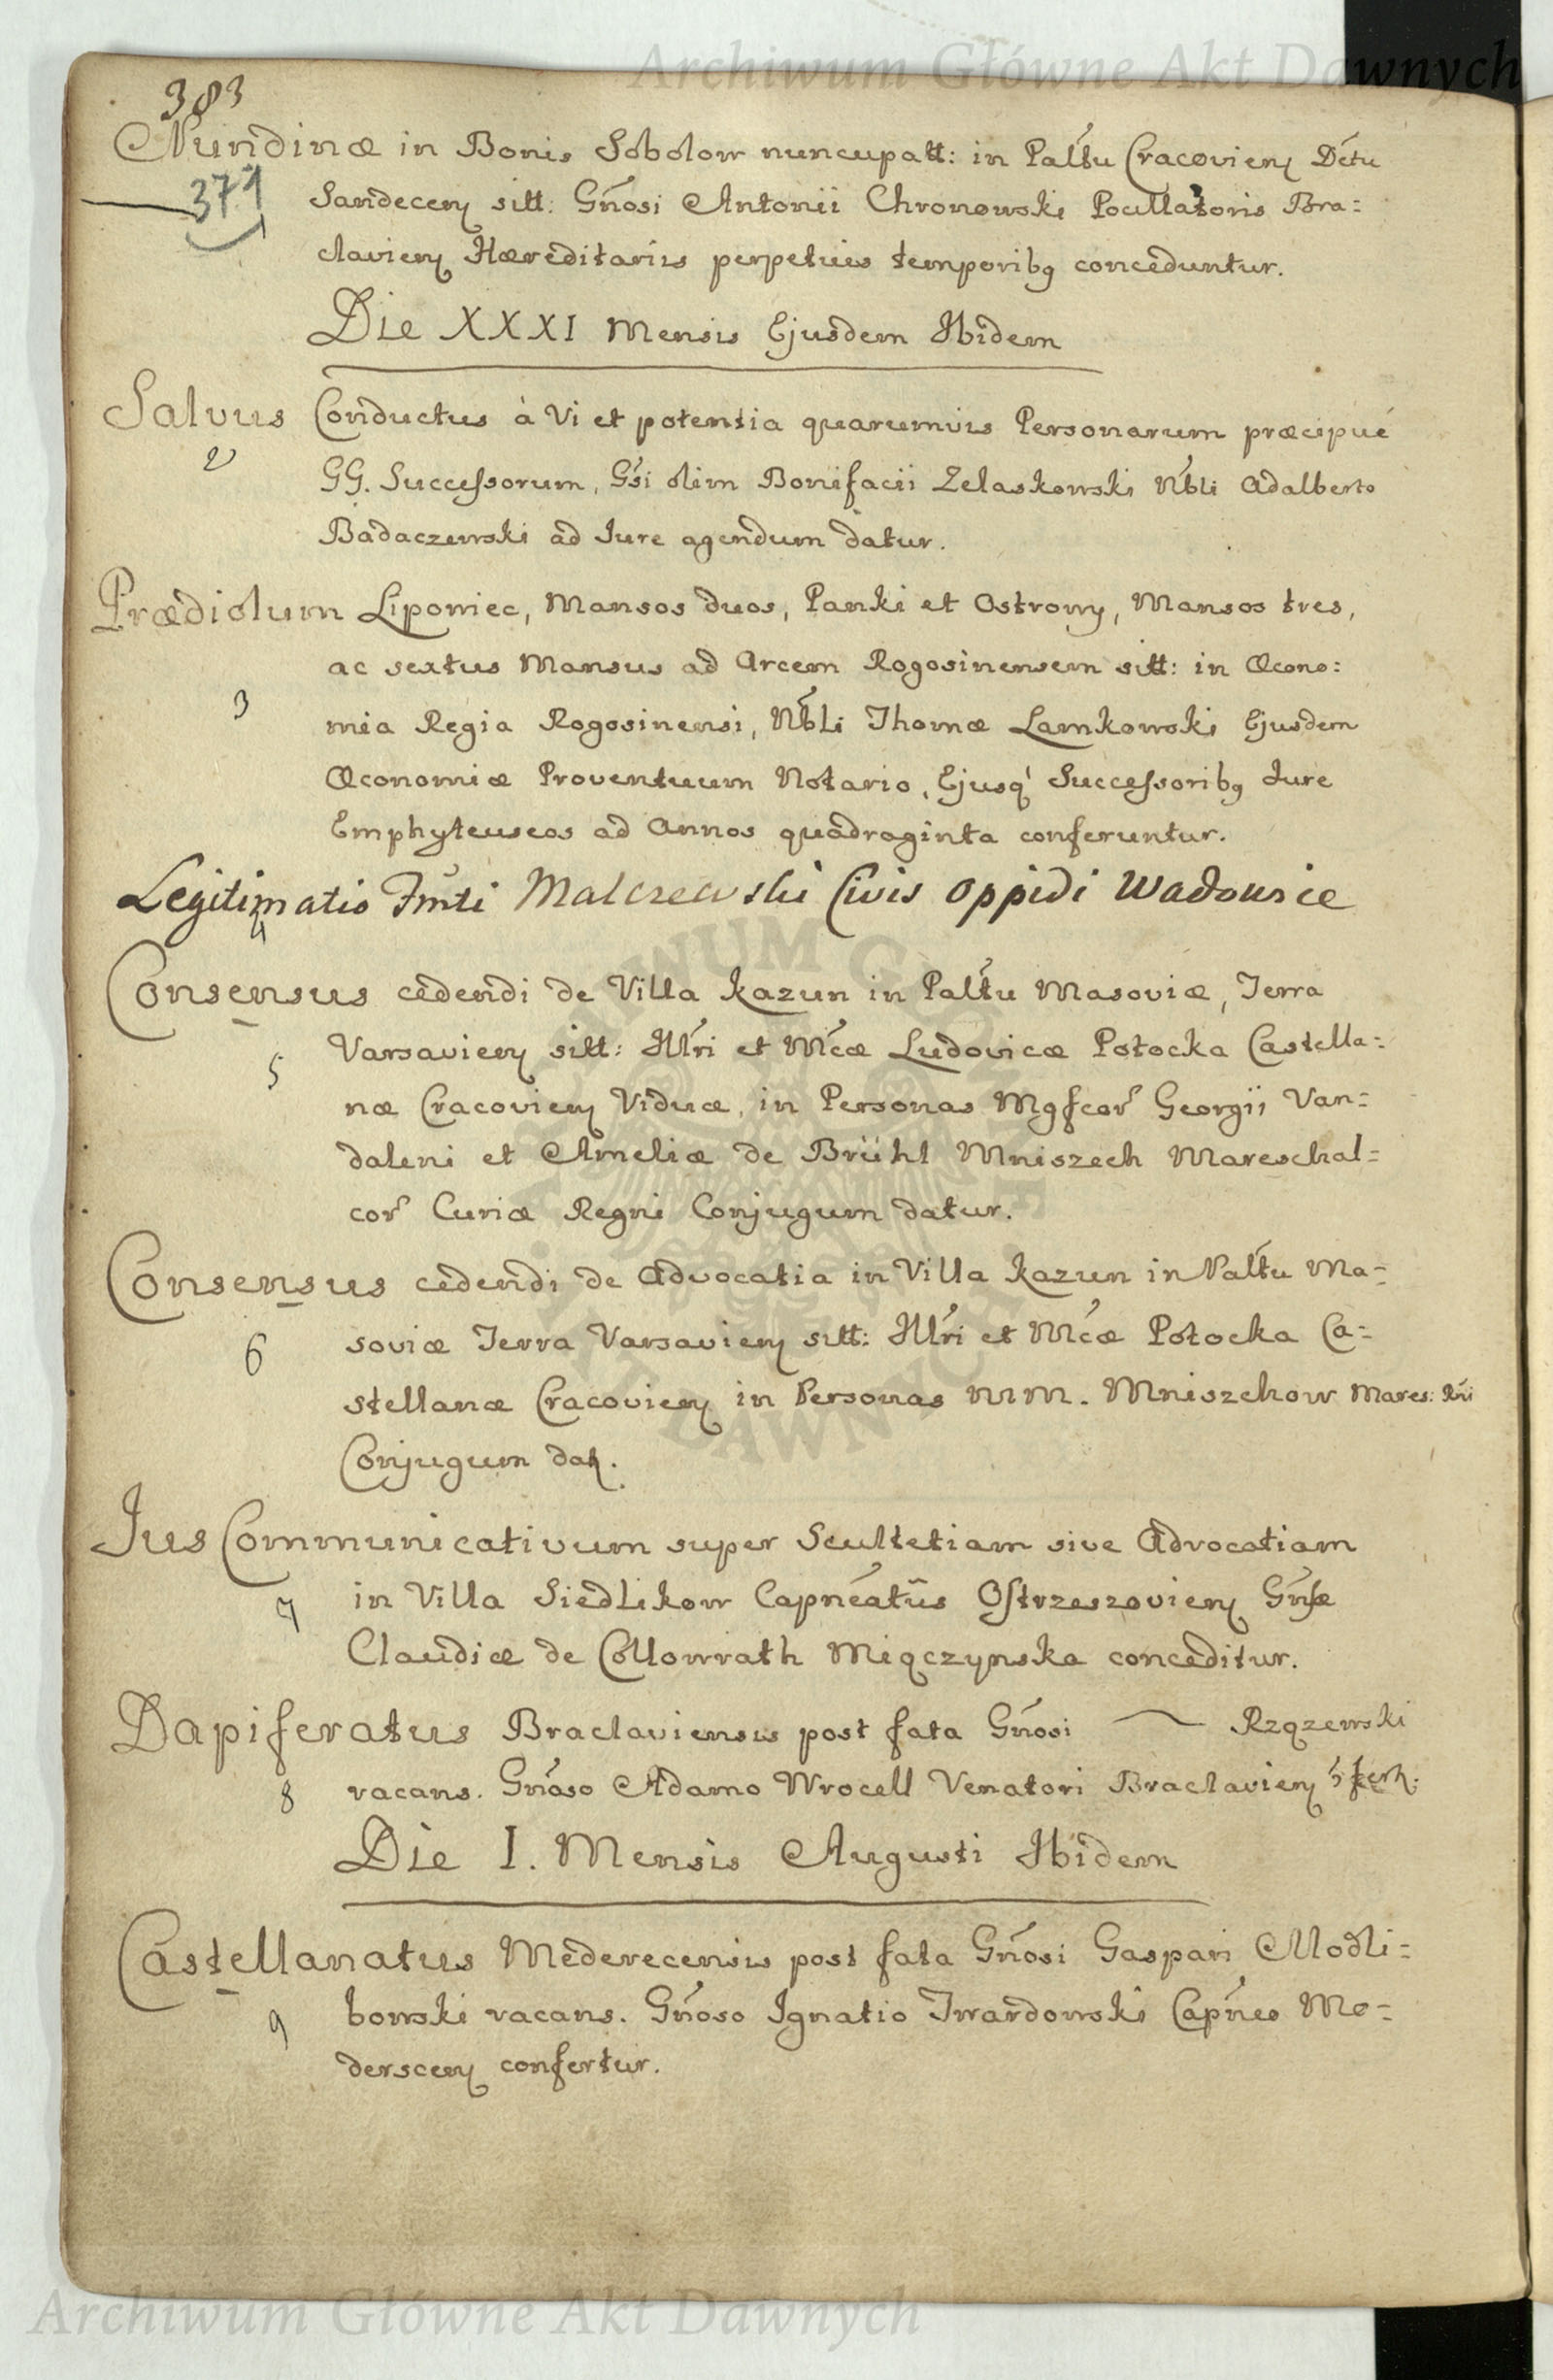 Archiwum Główne Akt Dawnych
383
Nundinæ in Bonis Sobolow nuncupatt: in Palttu Cracovien Dttu
371
Sandecen sitt: Gnosi Antonii Chronowski Pocillatoris Bra=
clavien Hæreditariis perpetuis temporibq concéduntur.
Die XXXI Mensis Ejusdem Ibidem
Salvus Conductus à Vi et potentia quarumvis Personarum præcipué
2
GG. Successorum, Gsi olim Bonifacii Zelaskowski Nbli Adalberto
Badaczewski ad Jure agendum datur.
Prædiolum Lipowiec, Mansos duos, Panki et Ostrowy, Mansos tres,
ac sextus Mansus ad Arcem Rogosinensem sitt: in Œcono:
3
mia Regia Rogosinensi, Nbli Thomæ Lamkowski Ejusdem
Œconomiæ Proventuum Notario, Ejusq' Successoribq Jure
Emphyteuseos ad Annos quadraginta conferuntur.
Legitimatio Fmti Malczewski Civis Oppidi Wadowice
4
Consensus cédendi de Villa Kazun in Palttu Masoviæ, Terra
5
Varsavien sitt: Illri et Mcæ Ludovicæ Potocka Castella=
næ Cracovien Viduæ, in Personas Mgfcor Georgii Van=
daleni et Ameliæ de Brühl Mniszech Mareschal=
cor Curiæ Regni Conjugum datur.
Consensus cedendi de Advocatia in Villa Kazun in Palttu Ma=
6
soviæ Terra Varsavien sitt: Illri et Mcæ Potocka Ca=
stellanæ Cracovien in Personas MM. Mniszchow Mares: Rni
Conjugum dat.
Jus Communicativum super Scultetiam sive Advocatiam
7
in Villa Siedlikow Capneatus Ostrzeszovien Gnsæ
Claudiæ de Collowrath Miączynska concéditur.
Dapiferatus Braclaviensis post fata Gnosi Rzązewski
8
vacans. Gnoso Adamo Wrocell Venatori Braclavien
Die I. Mensis Augusti Ibidem
Castellanatus Méderecensis post fata Gnosi Gaspari Modli=
9
bowski vacans. Gnoso Ignatio Twardowski Capneo Me=
derscen confertur.
Archiwum Główne Akt Dawnych